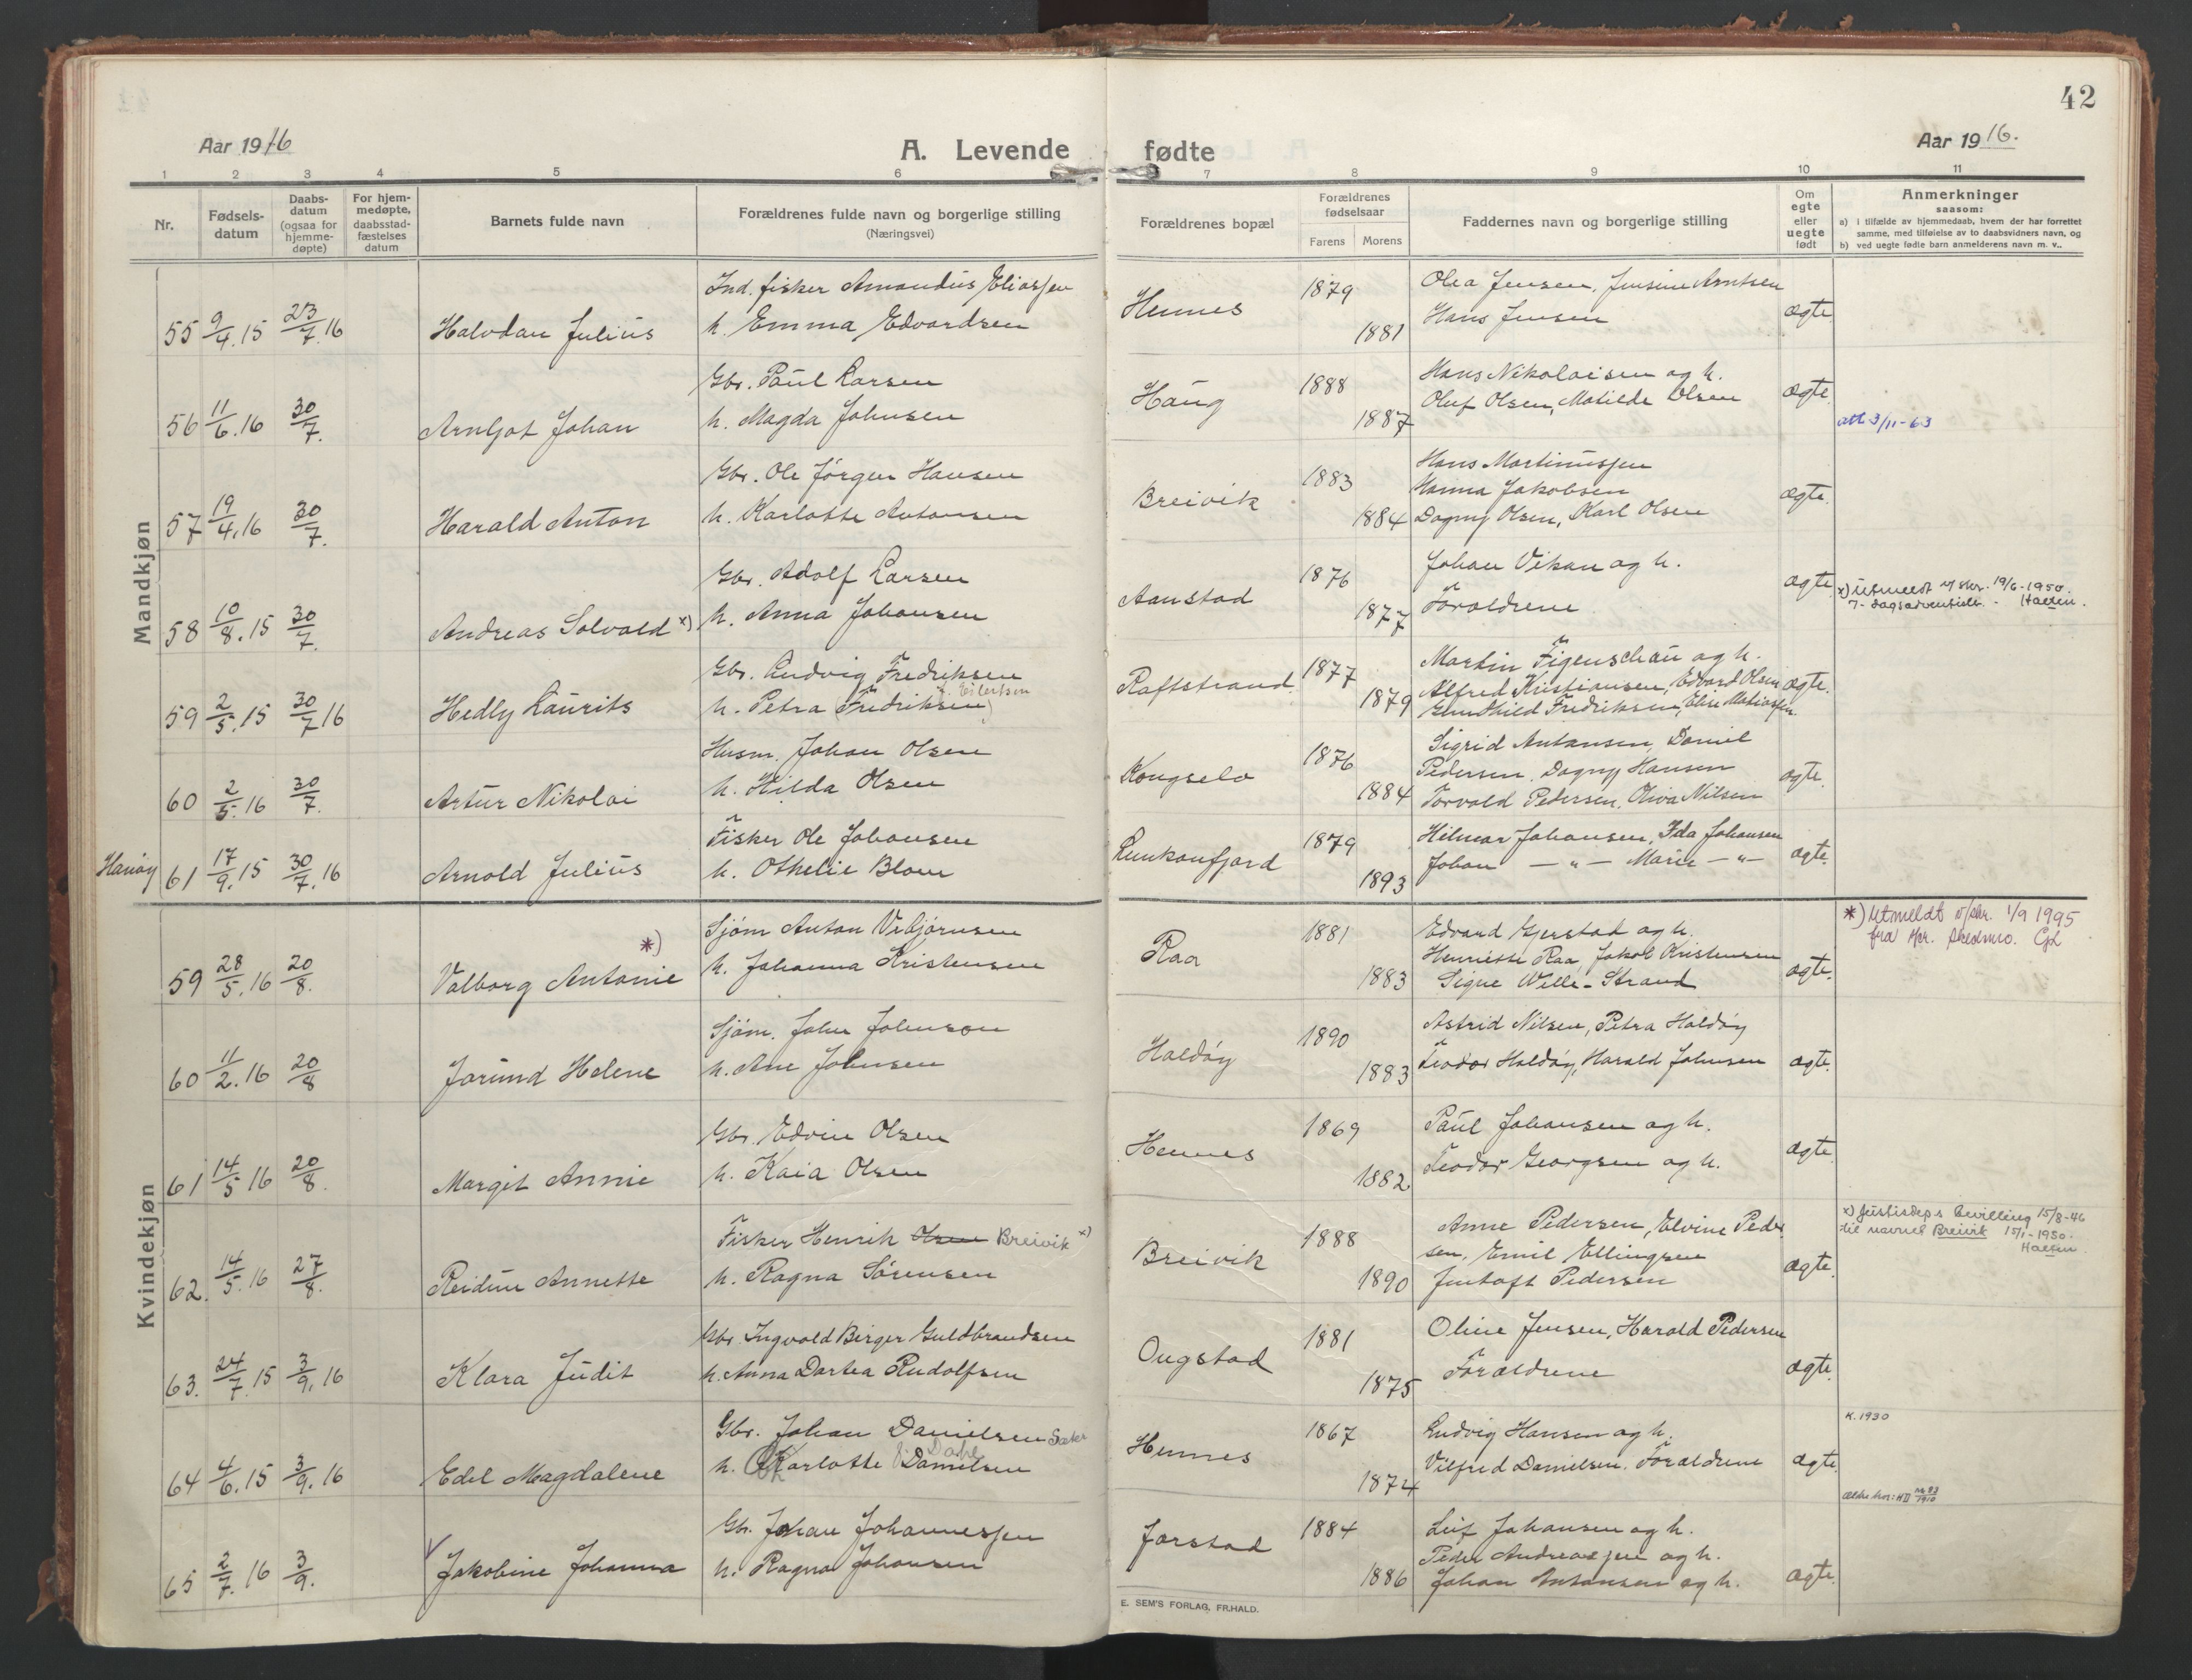 42
Aar 1916
A. Levende fødte
Aar 1916.
1 2 3 4 5 6 7 8 9 10 11
Nr.
Fødsels-
datum
Daabs-
datum
(ogsaa for
hjemme-
døpte)
For hjem-
medøpte,
daabsstad-
fæstelses
datum
Barnets fulde navn
Forældrenes fulde navn og borgerlige stilling
(Næringsvei)
Forældrenes bopæl
Forældrenes
fødselsaar
Farens Morens
Faddernes navn og borgerlige stilling
Om
egte
eller
uegte
født
Anmerkninger
saasom:
a) i tilfælde av hjemmedaab, hvem der har forrettet
samme, med tilføielse av to daabsvidners navn, og
b) ved uegte fødte barn anmelderens navn m. v..
Mandkjøn
55 9/4.15 23/7.16 Halvdan Julius
Ind. fisker Amandus Eliassen
h. Emma Edvardsen
Hennes 1879 1881
Olea Jensen, Jensine Arntsen
Hans Jensen
ægte.
56 11/6.16 30/7. Arnljot Johan
Gbr. Paul Larsen
h. Magda Johnsen
Haug 1888 1887
Hans Nikolaisen og h.
Oluf Olsen, Matilde Olsen
ægte.
att 3/11-63
57 19/4.16 30/7. Harald Anton
Gbr. Ole Jørgen Hansen
h. Karlotte Antonsen
Breivik 1883 1884
Hans Martinussen
Hanna Jakobsen
Dagny Olsen, Karl Olsen
ægte.
58 10/8.15 30/7. Andreas Solvald x)
Gbr. Adolf Larsen
h. Anna Johansen
Aanstad 1876 1877
Johan Vikan og h.
Forældrene
ægte.
x) Utmeldt v/skr. 19/6-1950.
7-dagsadventist.
59 2/5.15 30/7 16 Hedly Laurits
Gbr. Ludvig Fredriksen
h. Petra Fredriksen f. Eilertsen
Raftstrand. 1877 1879
Martin Figenschau og h.
Alfred Kristiansen, Edvard Olsen
Gunhild Fredriksen, Elise Matiassen
ægte.
60 2/5.16 30/7. Artur Nikolai
Husm. Johan Olsen
h. Hilda Olsen
Kongselv 1876 1884
Sigrid Antonsen, Daniel
Pedersen, Dagny Hansen
Torvald Pedersen, Oliva Nilsen
ægte.
Hanøy 61 17/9.15 30/7.16 Arnold Julius
Fisker Ole Johansen
h. Othelie Blom
Lunkanfjord 1879 1893
Hilmar Johansen, Ida Johansen
Johan — " — Marie — " —
ægte.
Kvindekjøn
59 28/5.16 20/8. Valborg Antonie *)
Sjøm Anton Vebjørnsen
h. Johanna Kristensen
Raa 1881 1883
Edvard Gjerstad og h.
Henriette Raa, Jakob Kristensen
Signe Welle-Strand
ægte.
*) Utmeldt v/skr. 1/9 1995
fra
60 11/2.16 20/8 Jorund Helene
Sjøm. John Johnson
h. Ane Johnsen
Holdøy 1890 1883
Astrid Nilsen, Petra Holdøy
Teodor Holdøy, Harald Johnsen
ægte.
61 14/5 16 20/8. Margit Annie
Gbr. Edvin Olsen
h. Kaia Olsen
Hennes 1869 1882
Paul Johansen og h.
Teodor Georgsen og h.
ægte.
62. 14/5.16 27/8. Reidun Annette
Fisker Henrik Breivik x)
h. Ragna Sørensen
Breivik 1888 1890
Anne Pedersen, Elvine Peder
sen, Emil Ellingsen
Jentoft Pedersen
ægte.
x) Justisdep.s bevilling 15/8-46
til navnet Breivik 15/1-1950.
63. 24/7.15 3/9.16 Klara Judit
Gbr Ingvald Birger Guldbrandsen
h. Anna Dortea Rudolfsen
Ongstad 1881 1875
Oline Jensen, Harald Pedersen
Forældrene
ægte.
64 4/6.15 3/9.16 Edel Magdalene
Gbr. Johan Danielsen Sæter
h. Karlotte Danielsen f. Dahl
Hennes 1867 1874
Ludvig Hansen og h.
Vilfred Danielsen. Forældrene
ægte.
K. 1930
65 2/7.16 3/9. Jakobine Johanna
Gbr. Johan Johannessen
h. Ragna Johansen
Jorstad 1884 1886
Leif Johansen og h.
Peder Andreassen og h.
Johan Antonsen og h.
ægte.
E. SEM'S FORLAG, FR.HALD.